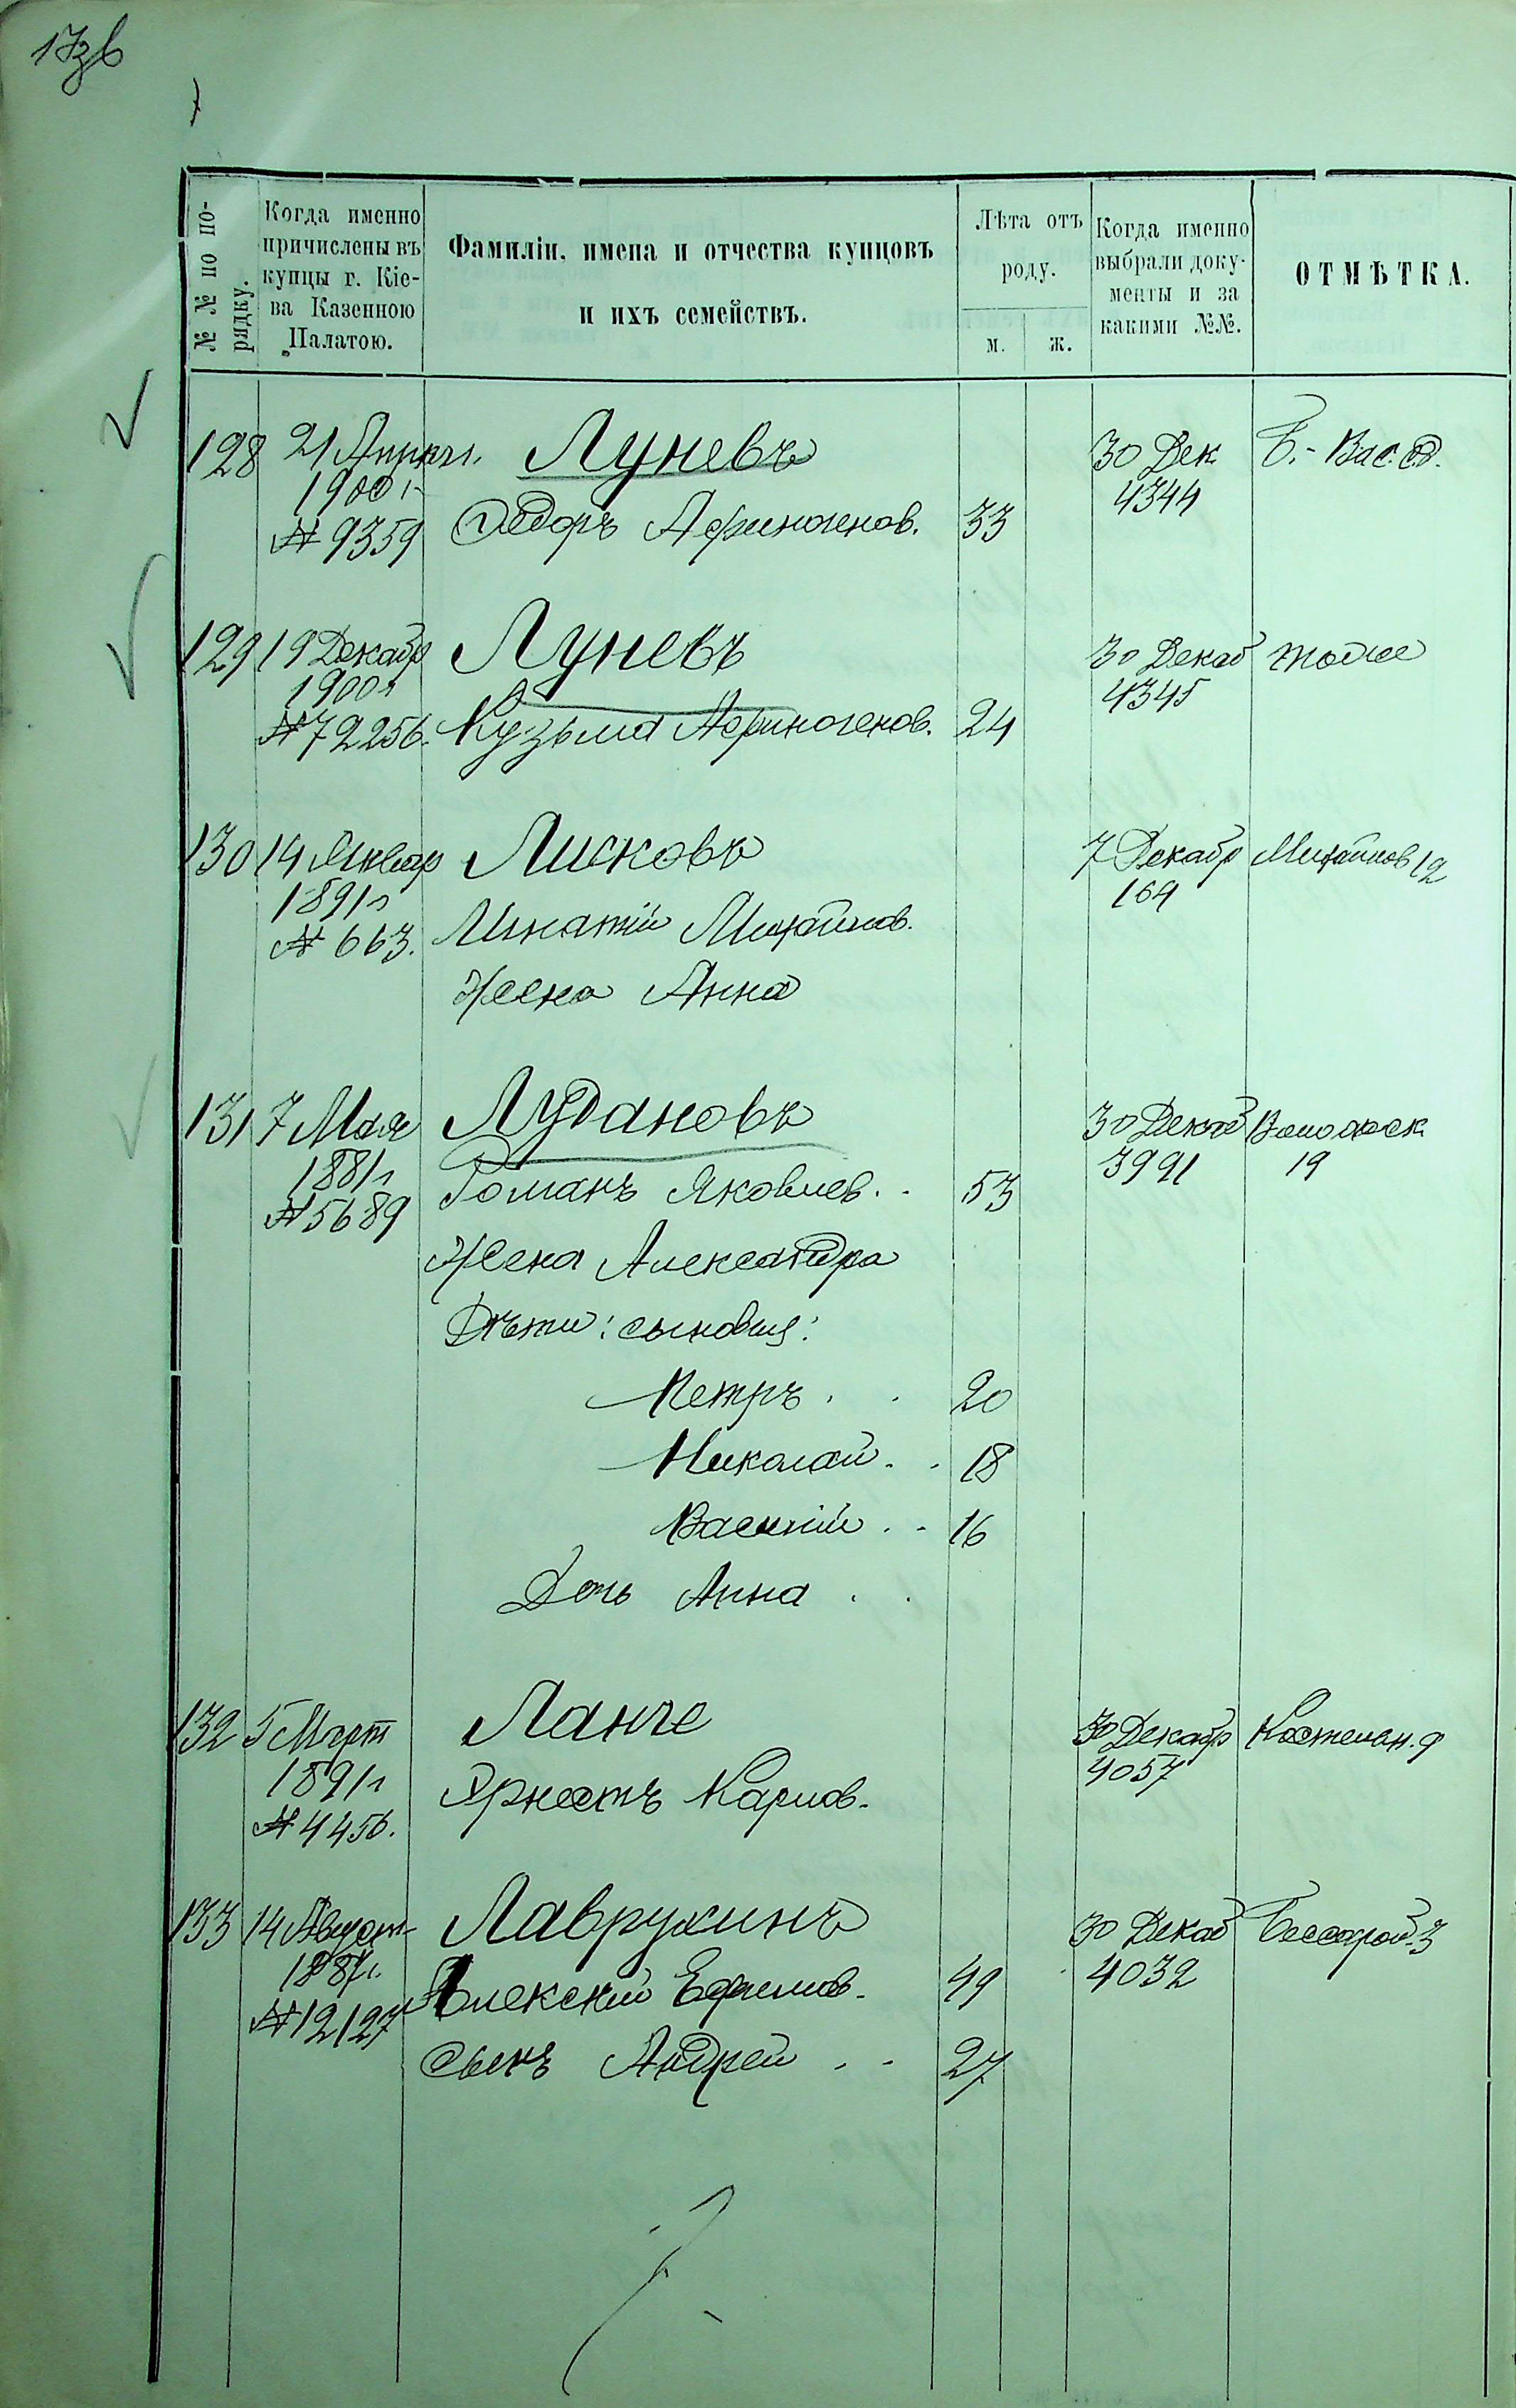 № № по по-
рядку.
Когда именно
причислены въ
купцы г. Кіе-
ва Казенною
Палатою.
Фамиліи, имена и отчества купцовъ
и ихъ семействъ.
Лѣта отъ
роду.
м. ж.
Когда именно
выбрали доку-
менты и за
какими №№.
ОТМѢТКА.
128 21 Апрѣл. Луневъ 30 Дек Б.-Вас. с.д.
1900 г 4344
№ 9359 Федоръ Афиногенов. 33
129 19 Декабр Луневъ 30 Декаб тоже
1900 г 4345
№ 72256. Кузьма Афиногенов. 24
130 14 Январ Лисковъ 7 Декабр Михайлов 12
1891 г 164
№ 663. Игнатій Михайлов.
Жена Анна
131 7 Мая Лудановъ 30 Декаб Волошск.
1881 г 3991 19
№ 5689 Романъ Яковлев. 53
Жена Александра
Дѣти: сыновья:
Петръ. 20
Николай. 18
Василій. 16
Дочь Анна
132 5 Март Ланге 30 Декабр Костелан. 9
1891 г 4057
№ 4456. Эрнестъ Карлов.
133 14 Август Лаврухинъ 30 Декаб 3
1887 г. 4032
№ 12127 Алексѣй Ефимов. 49
Сынъ Андрей 27